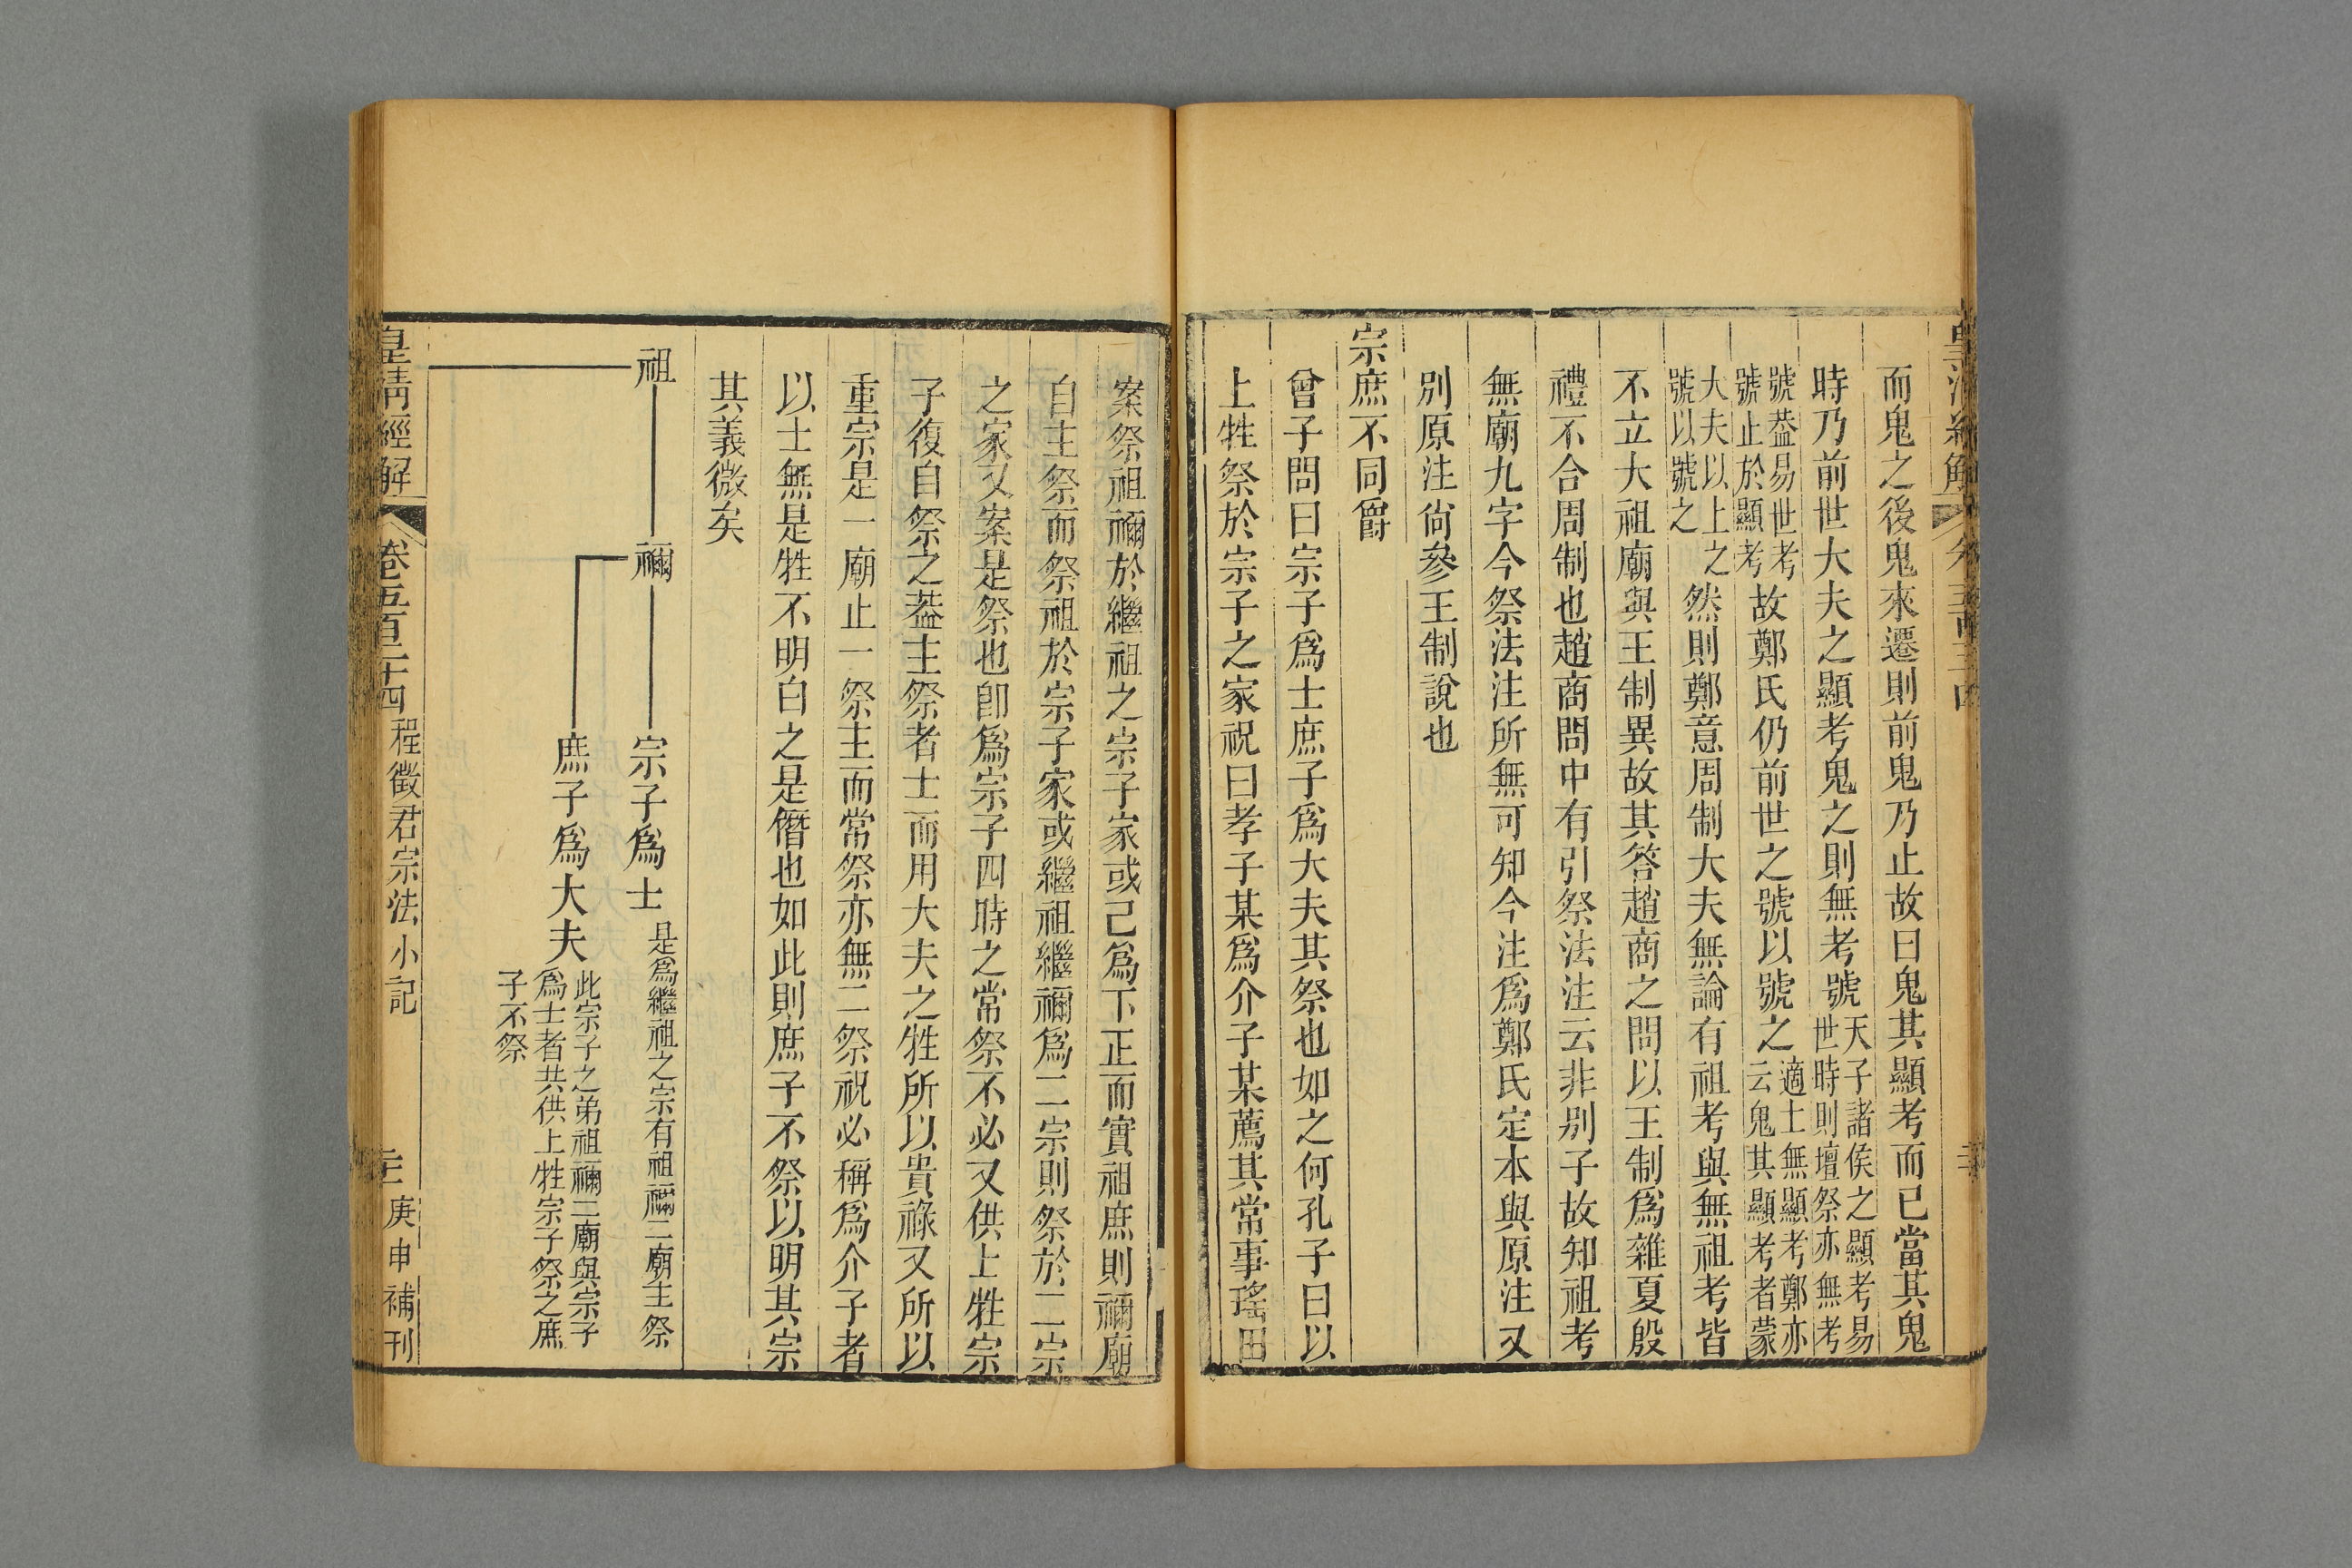 而鬼之後鬼來遷則前鬼乃止故曰鬼其顯考而已當其鬼
時乃前世大夫之顯考鬼之則無考號天子諸侯之顯考易世時則壇祭亦無考
號葢易世考號止於顯考故鄭氏仍前世之號以號之適士無顯考鄭亦云鬼其顯考者蒙
大夫以上之號以號之然則鄭意周制大夫無論有祖考與無祖考皆
不立大祖廟與王制異故其答趙商之問以王制爲雜夏殷
禮不合周制也趙商問中有引祭法注云非別子故知祖考
無廟九字今祭法注所無可知今注爲鄭氏定本與原注又
別原注尙參王制說也
宗庶不同爵
曾子問曰宗子爲士庶子爲大夫其祭也如之何孔子曰以
上牲祭於宗子之家祝曰孝子某爲介子某薦其常事瑤田
案祭祖禰於繼祖之宗子家或己爲下正而實祖庶則禰廟
自主祭而祭祖於宗子家或繼祖繼禰爲二宗則祭於二宗
之家又案是祭也卽爲宗子四時之常祭不必又供上牲宗
子復自祭之葢主祭者士而用大夫之牲所以貴祿又所以
重宗是一廟止一祭主而常祭亦無二祭祝必稱爲介子者
以士無是牲不明白之是僭也如此則庶子不祭以明其宗
其義微矣
祖
禰
宗子爲士是爲繼祖之宗有祖禰二廟主祭
庶子爲大夫此宗子之弟祖禰二廟與宗子
爲士者共供上牲宗子祭之庶
子不祭
皇淸經解 卷五百二十四 程徵君宗法小記 庚申補刊